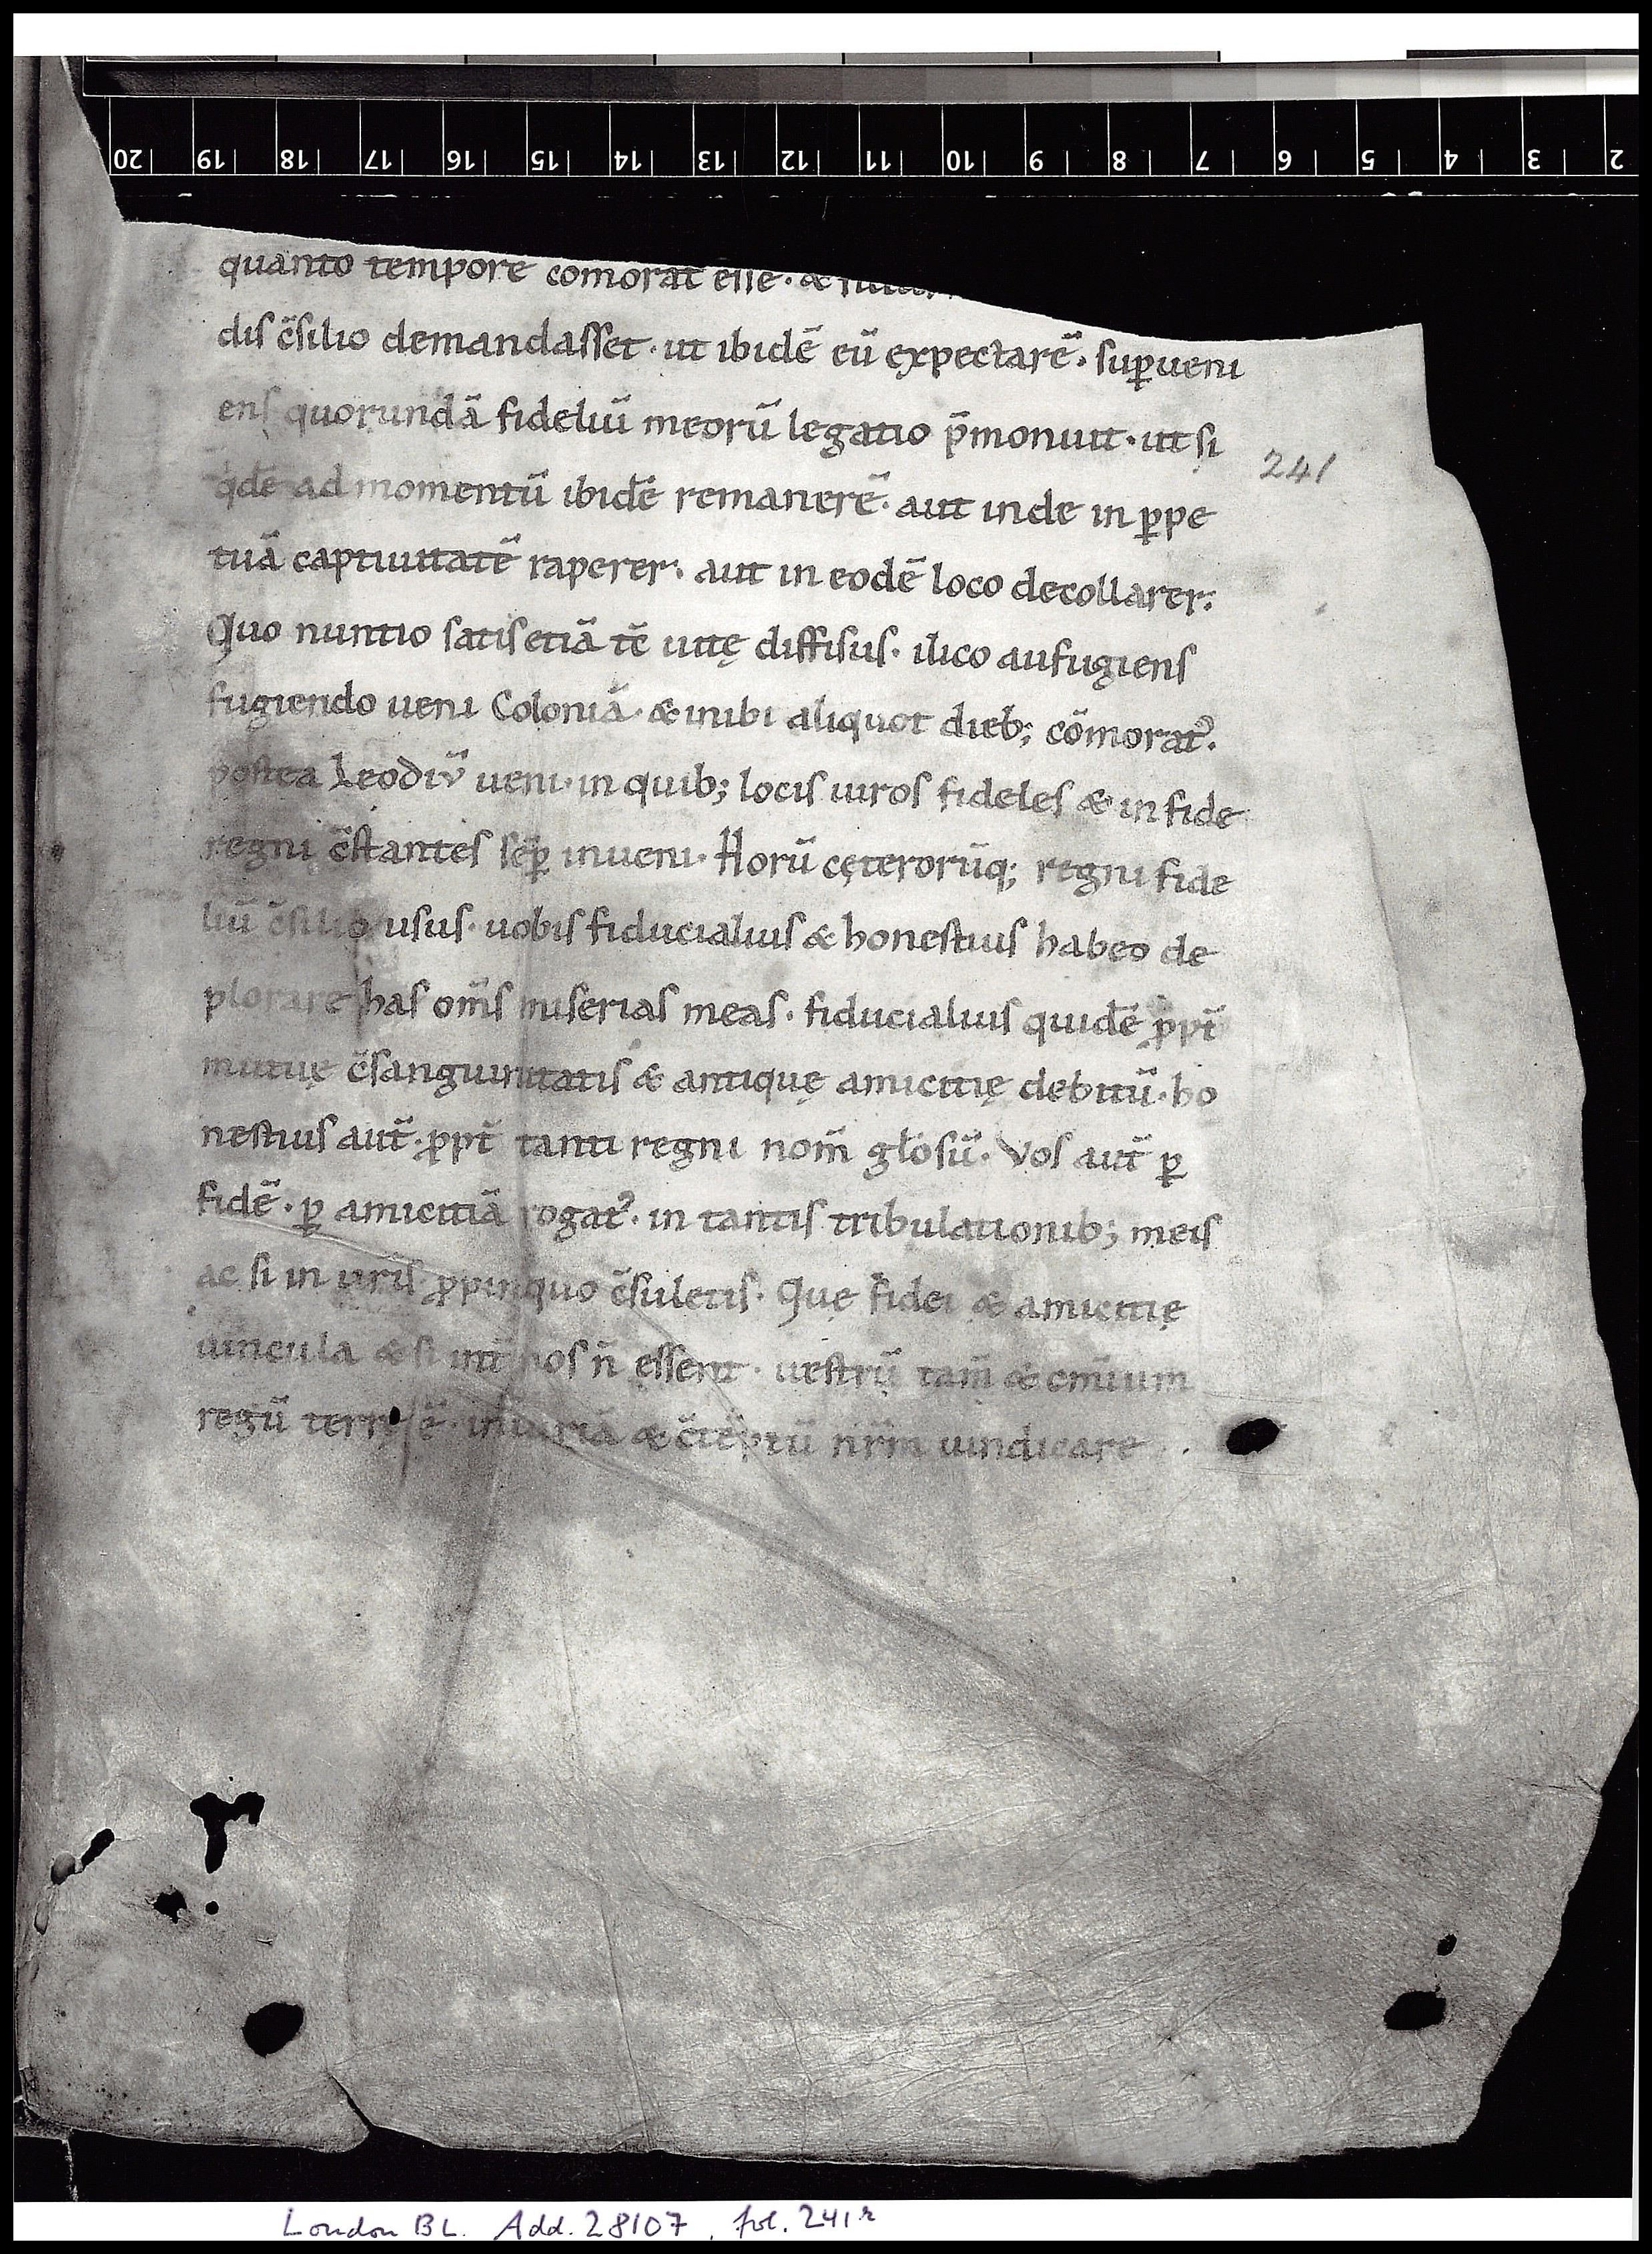 20 19 18 17 16 15 14 13 12 11 10 9 8 7 6 5 4 3 2
quanto tempore comorat esse · &
dis c̄silio demandasset · ut ibidē eū expectarē · sup̱ueni
ens quorundā fideliū meorū legatio p̄monuit · ut si
qͥdē ad momentū ibidē remanerē · aut inde in p̱pe
tuā captiuitatē raperer · aut in eodē loco decollarer ·
Quo nuntio satis etiā tē uitę diffisus · ilico aufugiens
fugiendo ueni Coloniā · & inibi aliquot dieb; cōmorat᾽ ·
postea Leodiū ueni · in quib; locis uiros fideles & in fide
regni c̄stantes sēp̱ inueni · Horū cęterorūq; regni fide
liū c̄silio usus · uobis fiducialius & honestius habeo de
plorare has om̄s miserias meas · fiducialius quidē ꝓpt̄
mutuę c̄sanguinitatis & antiquę amicitię debitū · ho
nestius aut̄ · ꝓpt̄ tanti regni nom̄ gl̄osū · Vos aut̄ p̱
fidē · p̱ amicitiā rogat᾽ · in tantis tribulationib; meis
ac si in ur̄is ꝓpinquo c̄suletis · Quę fidei & amicitię
uincula & si int̄ nos n̄ essent · uestrū tam̄ & om̄ium
regū terrę ē · iniuriā & c̄tēptū nr̄m uindicare
241
London BL. Add. 28107, fol. 241r